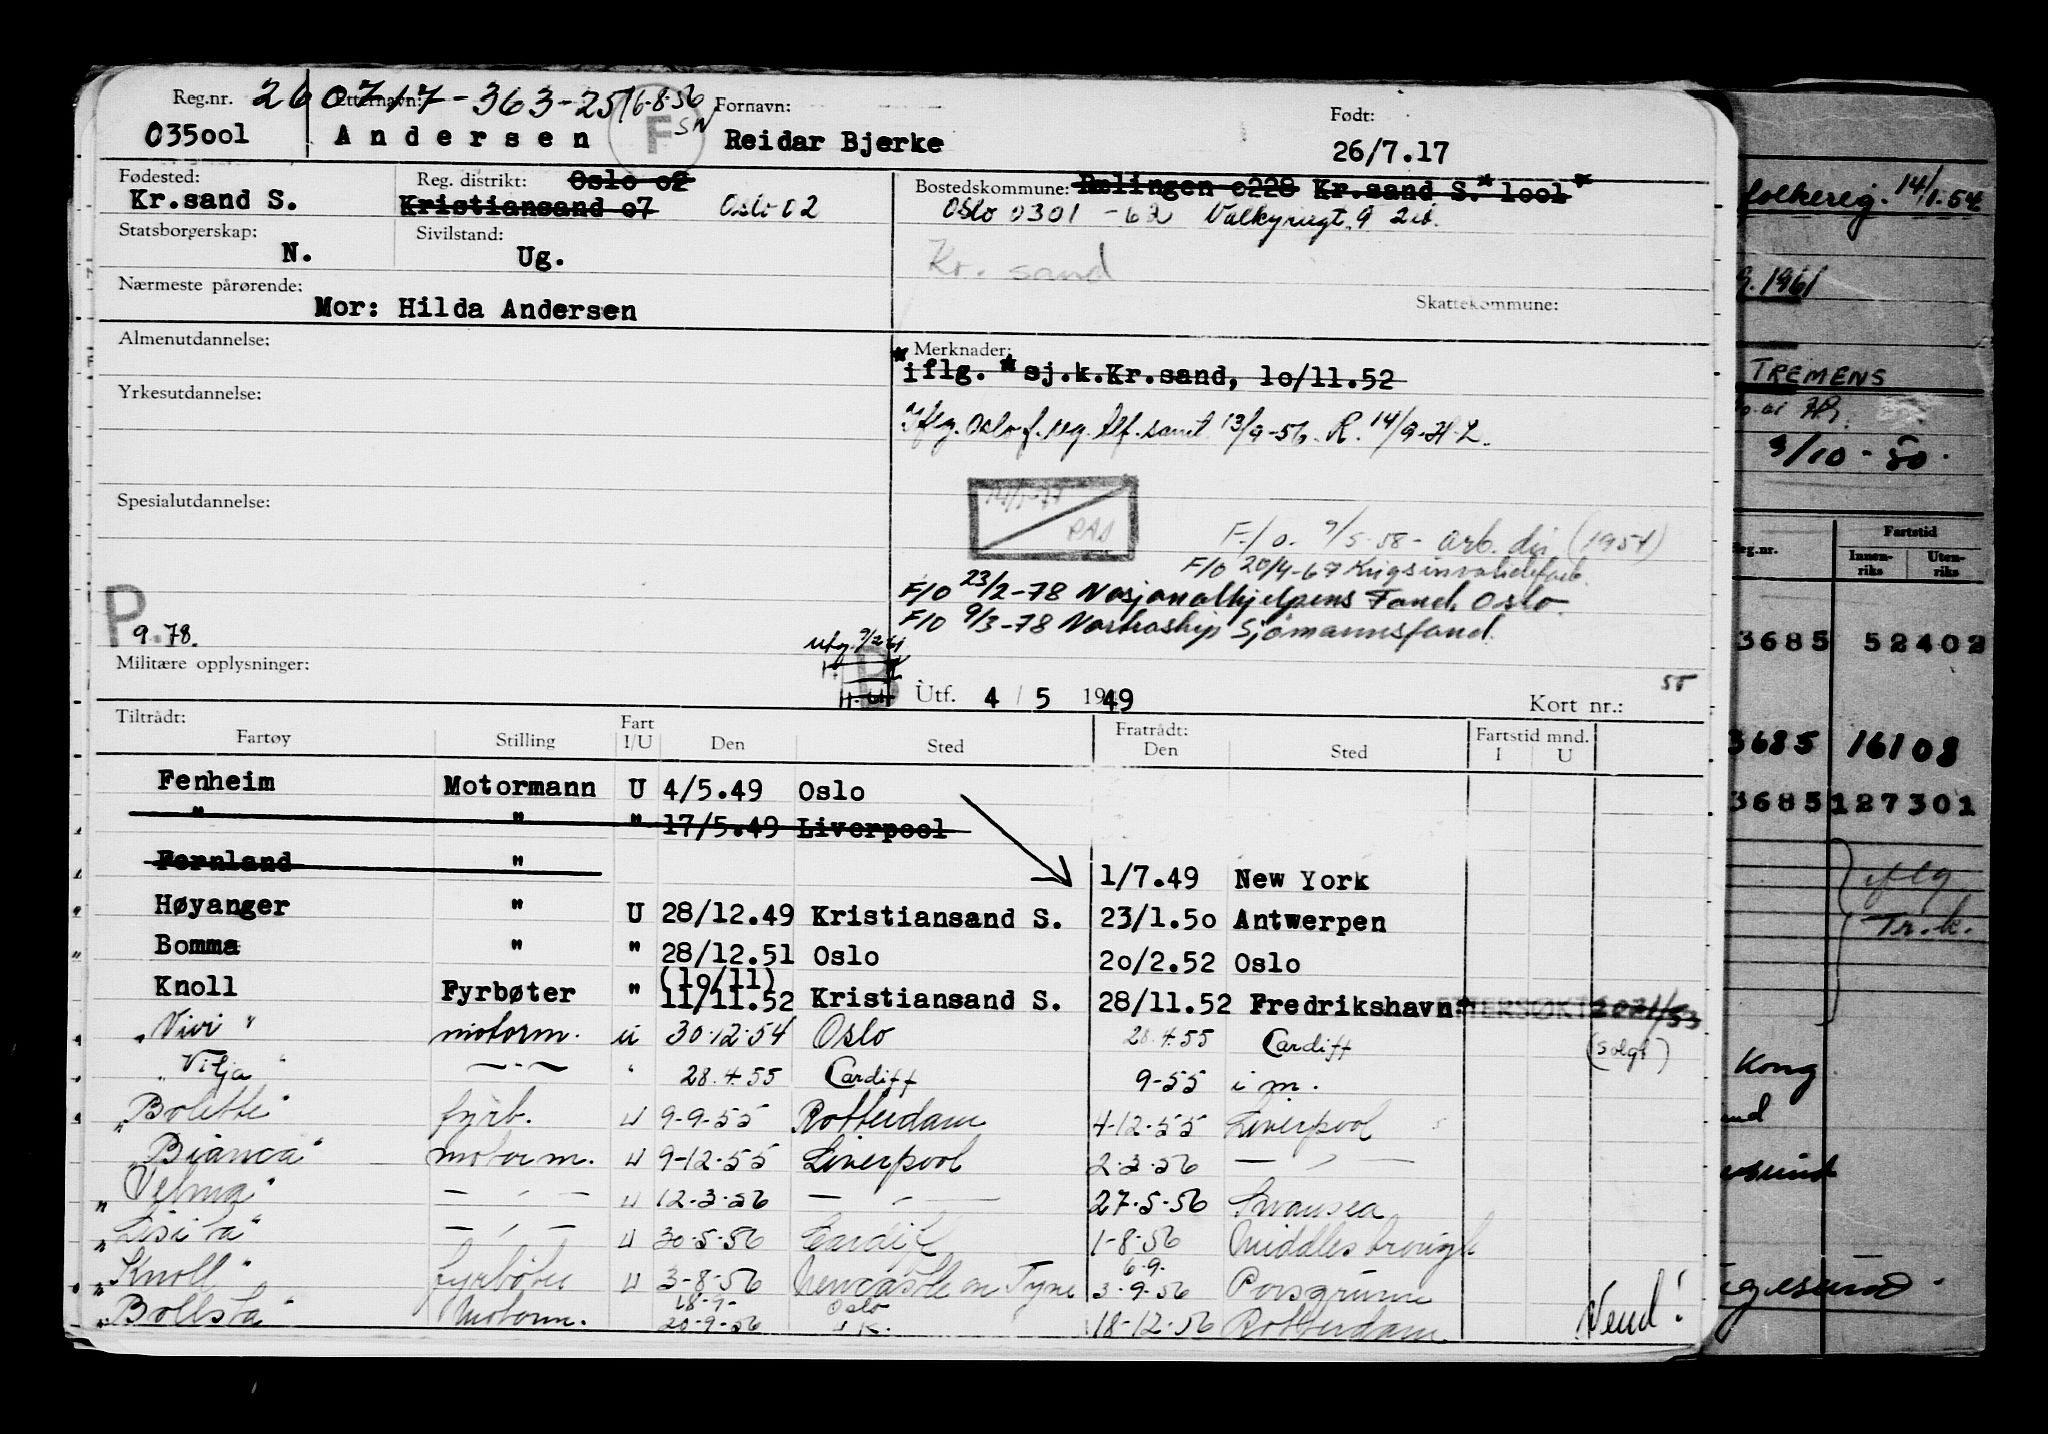 Reg.nr. 260717-363-25 Etternavn: 16-8-56 SN Fornavn: Født:
035001 Andersen F Reidar Bjerke 26/7.17
Fødested: Reg. distrikt: Oslo 02 Bostedskommune: Rælingen 0228 Kr.sand S.* 1001*
Kr.sand S. Kristiansand 07 Oslo 02 Oslo 0301 -62 Valkyriegt. 9
Statsborgerskap: N. Sivilstand: Ug. Kr. sand
Nærmeste pårørende: Mor: Hilda Andersen Skattekommune:
Almenutdannelse:
Merknader:
*iflg. *sj.k.Kr.sand, 10/11.52
Yrkesutdannelse:
Iflg. Oslo f.reg. tlf.samt. 13/9-56. R. 14/9-H.L.
Spesialutdannelse:
PAS
F/O. 9/5-58 - arb. dir (1954)
F/O 20/4-67 Krigsinvalideforb.
F/O 23/2-78 Nasjonalhjelpens Fond, Oslo
F/O 9/3-78 Nortraship Sjømannsfond.
P. 9.78.
Militære opplysninger:
Utf. 4 / 5 1949 Kort nr.:
Tiltrådt: Fratrådt:
Fartøy Stilling Fart I/U Den Sted Den Sted Fartstid mnd. I U
Fenheim Motormann U 4/5.49 Oslo
" " " 17/5.49 Liverpool
Fernland " 1/7.49 New York
Høyanger " U 28/12.49 Kristiansand S. 23/1.50 Antwerpen
Bomma " " 28/12.51 Oslo 20/2.52 Oslo
(19/11)
Knoll Fyrbøter " 11/11.52 Kristiansand S. 28/11.52 Fredrikshavn. ETTERSØKT
"Vivi" motorm. u 30.12.54 Oslo 28.4.55 Cardiff (solgt)
"Vilja" — " — " 28.4.55 Cardiff 9-55 i m.
"Bolette" fyrb. u 9-9-55 Rotterdam 4-12-55 Liverpool
"Bianca" motorm. u 9-12-55 Liverpool 2-3-56 — " —
"Velma" — " — u 12-3-56 — " — 27-5-56 Swansea
"Lisita" — " — u 30-5-56 Cardif 1-8-56 Middlesbrough
6.9.
"Knoll" fyrbøter u 3-8-56 Newcastle on Tyne 3-9-56 Porsgrunn
18-9- Oslo
"Bollsta" Motorm. 20-9-56 18-12-56 Rotterdam Vend!
folkereg. 14/1.54
9.1961
TREMENS
3/10-80.
Fartstid
Reg.nr. Innenriks Utenriks
3685 52402
3685 16108
3685 127301
iflg.
Tr.k.
Kong